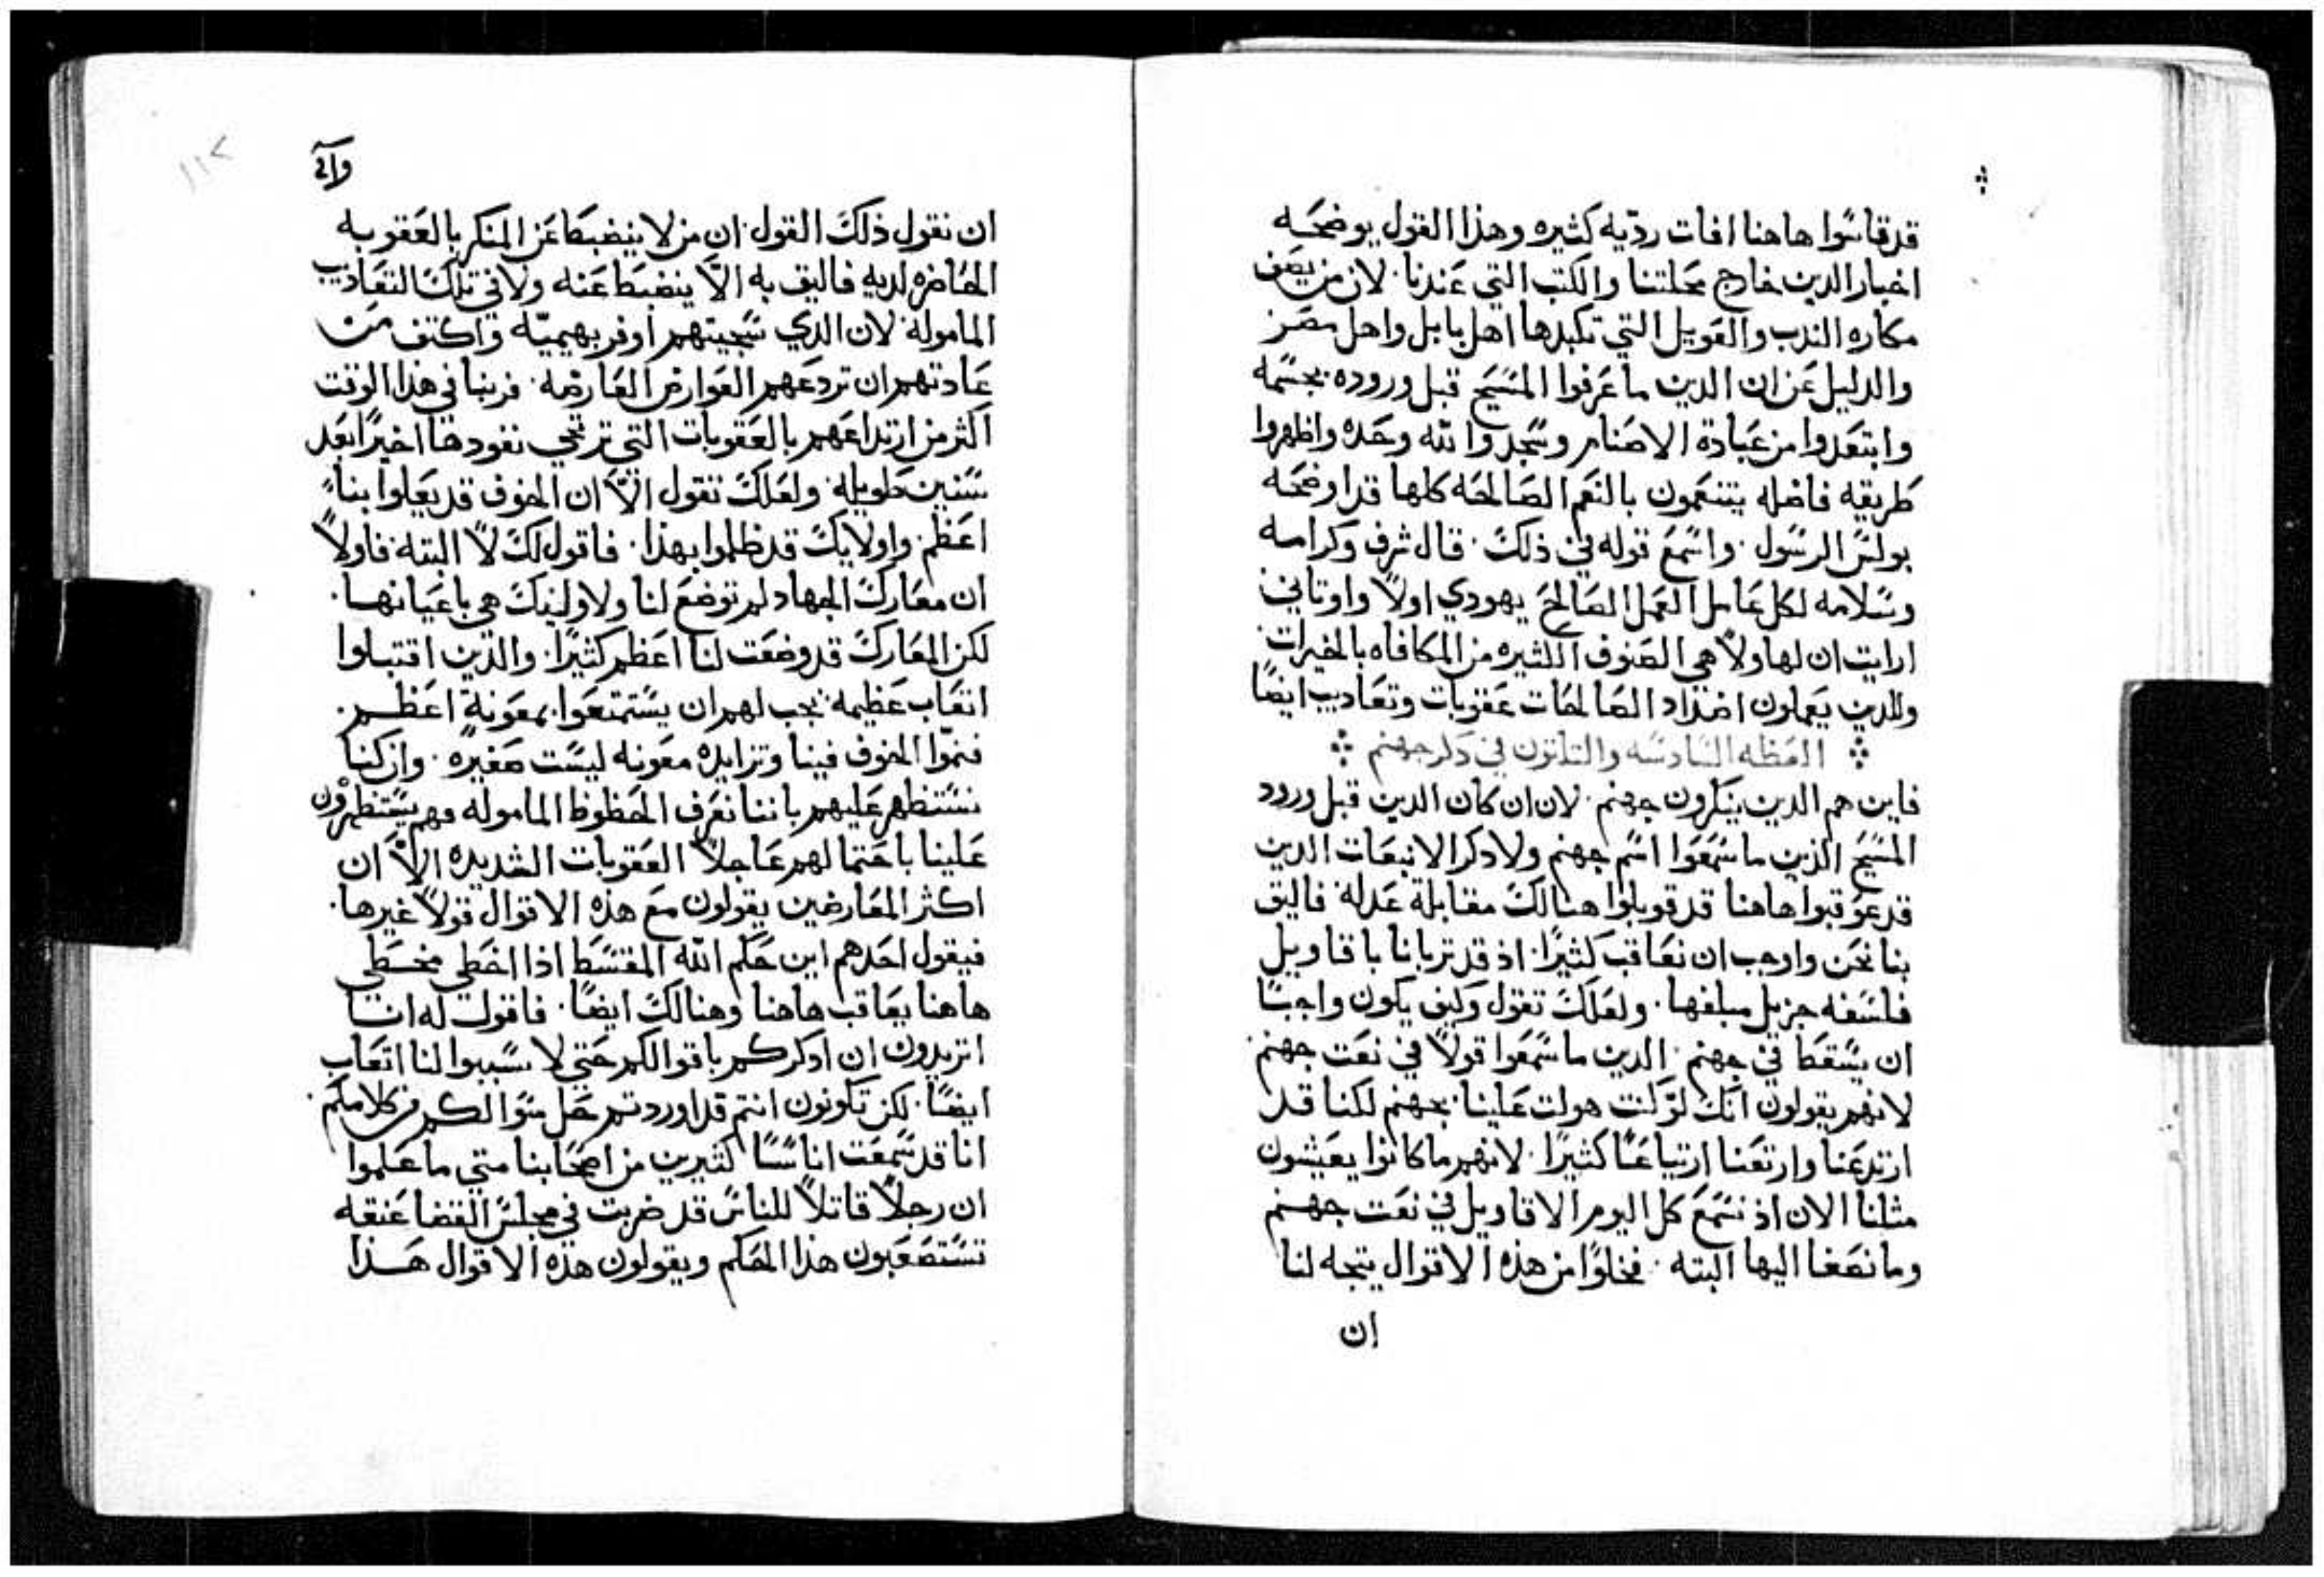 قد قاسوا هاهنا افات رديّه كثيره وهذا القول يوضحه
اخبار الدين خارج محلتنا والكتب التي عندنا. لان من يصف
مكاره الندب والعويل التي تكبدها اهل بابل واهل مصر
والدليل عن ان الدين ما عرفوا المسيح قبل وروده بجسمه
وابتعدوا من عبادة الاصنام وسجدوا لله وحده واظهروا
طريقه فاضله يتنعمون بالنعم الصالحه كلها قد اوضحه
بولس الرسول. واسمع قوله في ذلك. قال شرف وكرامه
وسلامه لكل عامل العمل الصالح يهودي اولاً واوتاني
ارايت ان لهاولاً هي الصنوف الكثيره من المكافاه بالخيرات
وللدين يعملون اضداد الصالحات عقوبات وتعاديب ايضاً
العظه السادسه والتلتون في دكر جهنم
فاين هم الدين ينكرون جهنم. لان ان كان الدين قبل ورود
المسيح الدين ما سمعوا اسم جهنم ولا دكر الانبعات الدين
قد عوقبوا هاهنا قد قوبلوا هنالك مقابلة عدله فاليق
بنا نحن واوجب ان نعاقب كثيراً. اذ قد تربانا باقاويل
فلسفه جزيل مبلغها. ولعلك تقول وكيف يكون واجباً
ان يسقط في جهنم. الدين ما سمعوا قولاً في نعت جهنم.
لانهم يقولون انك لو كنت هولت علينا بجهنم لكنا قد
ارتدعنا وارتعنا ارتياعاً كثيراً. لانهم ما كانوا يعيشون
مثلنا الان اذ نسمع كل اليوم الاقاويل في نعت جهنم
وما نصغا اليها البته. فخلوًا من هذه الاقوال يتجه لنا
ان
ان نقول ذلك القول. ان من لا ينضبط عن المنكر بالعقوبه
الحاضره لديه فاليق به الاّ ينضبط عنه ولا في تلك التعاديب
الماموله. لان الدي سجيتهم اوفر بهيميّه واكتف من
عادتهم ان تردعهم العوارض العارضه. فربنا في هذا الوقت
اكثر من ارتداعهم بالعقوبات التي ترتجي نفودها اخيراً بعد
سنين طويله. ولعلك تقول الاّ ان الخوف قد يعلوا بناءً
اعظم. واولايك قد ظلموا بهذا. فاقول لك لاً البته. فاولاً
ان معارك الجهاد لم توضع لنا ولاوليك هي باعيانها.
لكن المعارك قد وضعت لنا اعظم كثيراً. والدين اقتبلوا
اتعاب عظيمه يجب لهم ان يستمتعوا بمعونة اعظم.
فنموّا الخوف فينا وتزايده معونه ليست صغيره. وان كنا
نستظهر عليهم باننا نعرف الحظوظ الماموله وهم يستظهرون
علينا باحتمالهم عاجلاً العقوبات الشديده الاّ ان
اكثر المعارضين يقولون مع هذه الاقوال قولاً غيرها.
فيقول احدهم اين حكم الله المقسط اذا اخطى مخطى
هاهنا يعاقب هاهنا وهنالك ايضاً. فاقول له انا
اتريدون ان ادكركم باقوالكم حتى لا تسببوا لنا اتعاب
ايضاً. لكن تكونون انتم قد اوردتم حل سوالكم من كلامكم.
انا قد سمعت اناساً كثيرين من اصحابنا متى ما علموا
ان رجلاً قاتلاً للناس قد ضربت في مجلس القضا عنقه
تستصعبون هذا الحكم ويقولون هذه الاقوال هذا